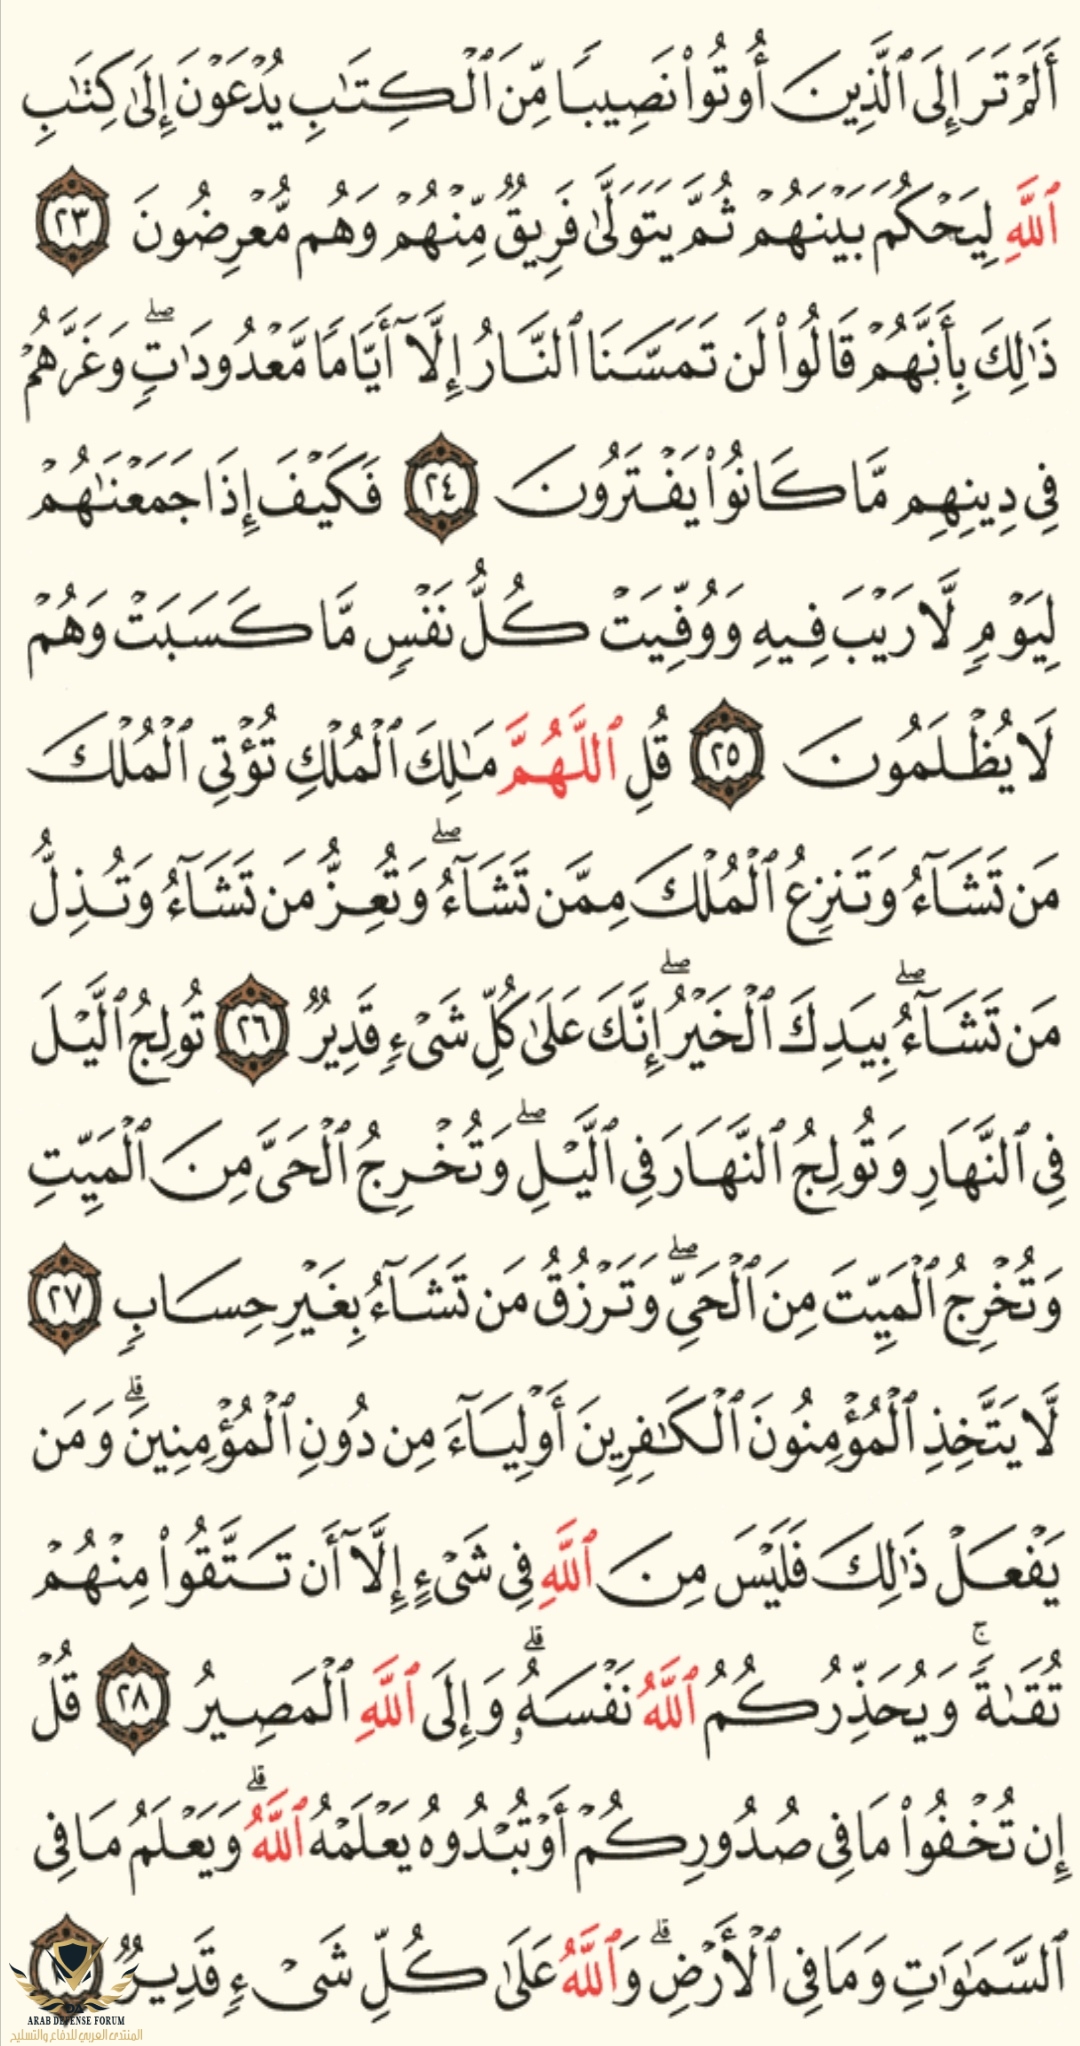 أَلَمْ تَرَ إِلَى ٱلَّذِينَ أُوتُوا۟ نَصِيبًا مِّنَ ٱلْكِتَـٰبِ يُدْعَوْنَ إِلَىٰ كِتَـٰبِ
ٱللَّهِ لِيَحْكُمَ بَيْنَهُمْ ثُمَّ يَتَوَلَّىٰ فَرِيقٌ مِّنْهُمْ وَهُم مُّعْرِضُونَ ٢٣
ذَٰلِكَ بِأَنَّهُمْ قَالُوا۟ لَن تَمَسَّنَا ٱلنَّارُ إِلَّآ أَيَّامًا مَّعْدُودَٰتٍ ۖ وَغَرَّهُمْ
فِى دِينِهِم مَّا كَانُوا۟ يَفْتَرُونَ ٢٤ فَكَيْفَ إِذَا جَمَعْنَـٰهُمْ
لِيَوْمٍ لَّا رَيْبَ فِيهِ وَوُفِّيَتْ كُلُّ نَفْسٍ مَّا كَسَبَتْ وَهُمْ
لَا يُظْلَمُونَ ٢٥ قُلِ ٱللَّهُمَّ مَـٰلِكَ ٱلْمُلْكِ تُؤْتِى ٱلْمُلْكَ
مَن تَشَآءُ وَتَنزِعُ ٱلْمُلْكَ مِمَّن تَشَآءُ ۖ وَتُعِزُّ مَن تَشَآءُ وَتُذِلُّ
مَن تَشَآءُ ۖ بِيَدِكَ ٱلْخَيْرُ ۖ إِنَّكَ عَلَىٰ كُلِّ شَىْءٍ قَدِيرٌ ٢٦ تُولِجُ ٱلَّيْلَ
فِى ٱلنَّهَارِ وَتُولِجُ ٱلنَّهَارَ فِى ٱلَّيْلِ ۖ وَتُخْرِجُ ٱلْحَىَّ مِنَ ٱلْمَيِّتِ
وَتُخْرِجُ ٱلْمَيِّتَ مِنَ ٱلْحَىِّ ۖ وَتَرْزُقُ مَن تَشَآءُ بِغَيْرِ حِسَابٍ ٢٧
لَّا يَتَّخِذِ ٱلْمُؤْمِنُونَ ٱلْكَـٰفِرِينَ أَوْلِيَآءَ مِن دُونِ ٱلْمُؤْمِنِينَ ۗ وَمَن
يَفْعَلْ ذَٰلِكَ فَلَيْسَ مِنَ ٱللَّهِ فِى شَىْءٍ إِلَّآ أَن تَتَّقُوا۟ مِنْهُمْ
تُقَىٰةً ۚ وَيُحَذِّرُكُمُ ٱللَّهُ نَفْسَهُۥ ۗ وَإِلَى ٱللَّهِ ٱلْمَصِيرُ ٢٨ قُلْ
إِن تُخْفُوا۟ مَا فِى صُدُورِكُمْ أَوْ تُبْدُوهُ يَعْلَمْهُ ٱللَّهُ ۗ وَيَعْلَمُ مَا فِى
ٱلسَّمَـٰوَٰتِ وَمَا فِى ٱلْأَرْضِ ۗ وَٱللَّهُ عَلَىٰ كُلِّ شَىْءٍ قَدِيرٌ
ARAB DEFENSE FORUM
المنتدى العربي للدفاع والتسليح